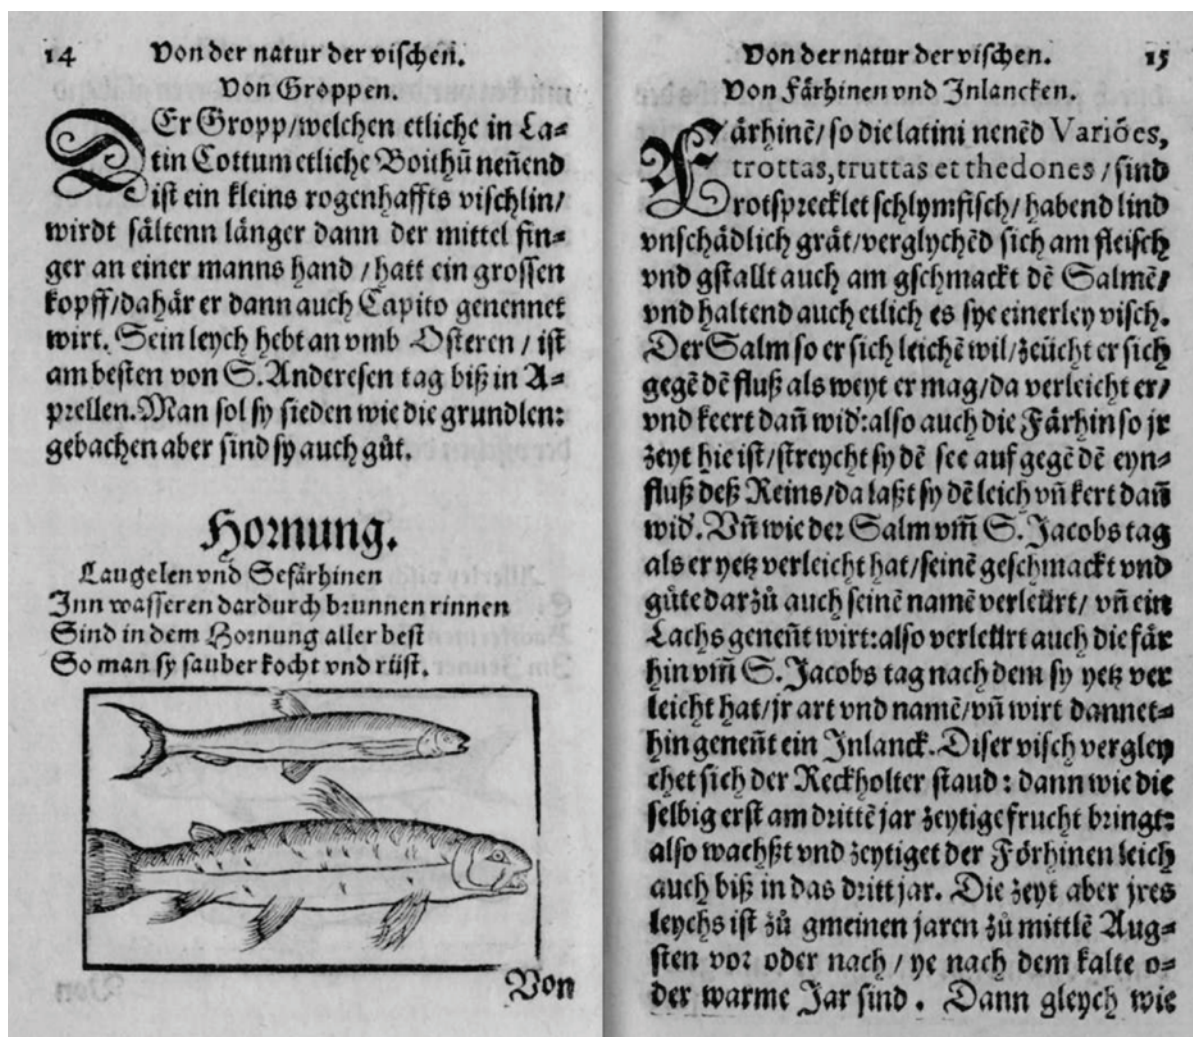 14 Von der natur der vischen.
Von Groppen.
DEr Gropp/welchen etliche in La⸗
tin Cottum etliche Boithū neñend
ist ein kleins rogenhaffts vischlin/
wirdt sältenn länger dann der mittel fin⸗
ger an einer manns hand / hatt ein grossen
kopff/dahär er dann auch Capito genennet
wirt. Sein leych hebt an vmb Osteren / ist
am besten von S. Anderesen tag biß in A⸗
prellen. Man sol sy sieden wie die grundlen:
gebachen aber sind sy auch gůt.
Hornung.
Laugelen vnd Sefärhinen
Inn wasseren dardurch brunnen rinnen
Sind in dem Hornung aller best
So man sy sauber kocht vnd rüst.
Von
Von der natur der vischen. 15
Von färhinen vnd Inlancken.
Färhinē/ so die latini nenēd Variões,
trottas, truttas et thedones / sind
rotsprecklet schlymfisch/ habend lind
vnschädlich grät/verglychēd sich am fleisch
vnd gstallt auch am gschmackt dē Salmē/
vnd haltend auch etlich es sye einerley visch.
Der Salm so er sich leichē wil/zeücht er sich
gegē dē fluß als weyt er mag/da verleicht er/
vnd keert dañ wid:also auch die Färhin so jr
zeyt hie ist/streycht sy dē see auf gegē dē eyn⸗
fluß deß Reins/da laßt sy dē leich vñ kert dañ
wid. Vñ wie der Salm vm̃ S. Jacobs tag
als er yetz verleicht hat/seinē geschmackt vnd
gůte darzů auch seinē namē verleürt/ vñ ein
Lachs geneñt wirt:also verleürt auch die fär
hin vm̃ S. Jacobs tag nach dem sy yetz ver
leicht hat/jr art vnd namē/vñ wirt dannet⸗
hin geneñt ein Inlanck. Diser visch vergley
chet sich der Reckholter staud : dann wie die
selbig erst am drittē jar zeytige frucht bringt:
also wachßt vnd zeytiget der Förhinen leich
auch biß in das dritt jar. Die zeyt aber jres
leychs ist zů gmeinen jaren zů mittlē Aug⸗
sten vor oder nach / ye nach dem kalte o⸗
der warme Jar sind . Dann gleych wie